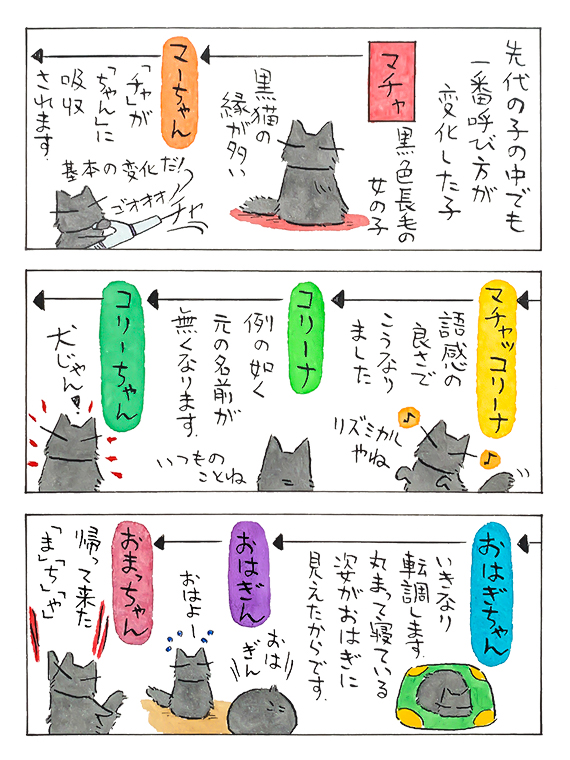 先代の子の中でも
一番呼び方が
変化した子
マチャ
黒色長毛の
女の子
黒猫の
縁が多い
マーちゃん
「チャ」が
「ちゃん」に
吸収
されます
基本の変化だ!
ゴオオオ
チャ
マチャッコリーナ
語感の
良さで
こうなり
ました
リズミカル
やね
コリーナ
例の如く
元の名前が
無くなります.
いつもの
ことね
コリーちゃん
犬じゃん!
おはぎちゃん
いきなり
転調します.
丸まって寝ている
姿がおはぎに
見えたからです.
おはぎん
おは
ぎん
おはよー
おまっちゃん
帰って来た
「ま」「ち」「ゃ」